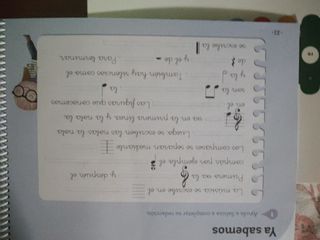 Ya sabemos
1 Ayuda a Salicia a completar su redacción.
La música se escribe en el
Primero va la y después el
compás por ejemplo el
Los compases se separan mediante
Luego se escriben las notas. La nota
va en la primera línea y la nota
en el Las figuras que conocemos
son la la
y la También hay silencios como el
de y el de Para terminar
se escribe la